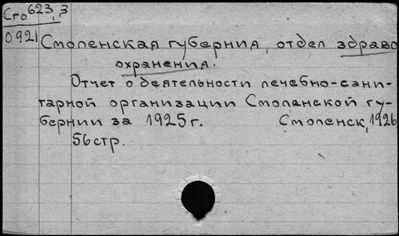 Сго 623,3
0921
Смоленская губерния, отдел здраво
охранения.
Отчет о деятельности лечебно-сани-
тарной организации Смоленской гу-
бернии за 1925г. Смоленск, 1926
56стр.